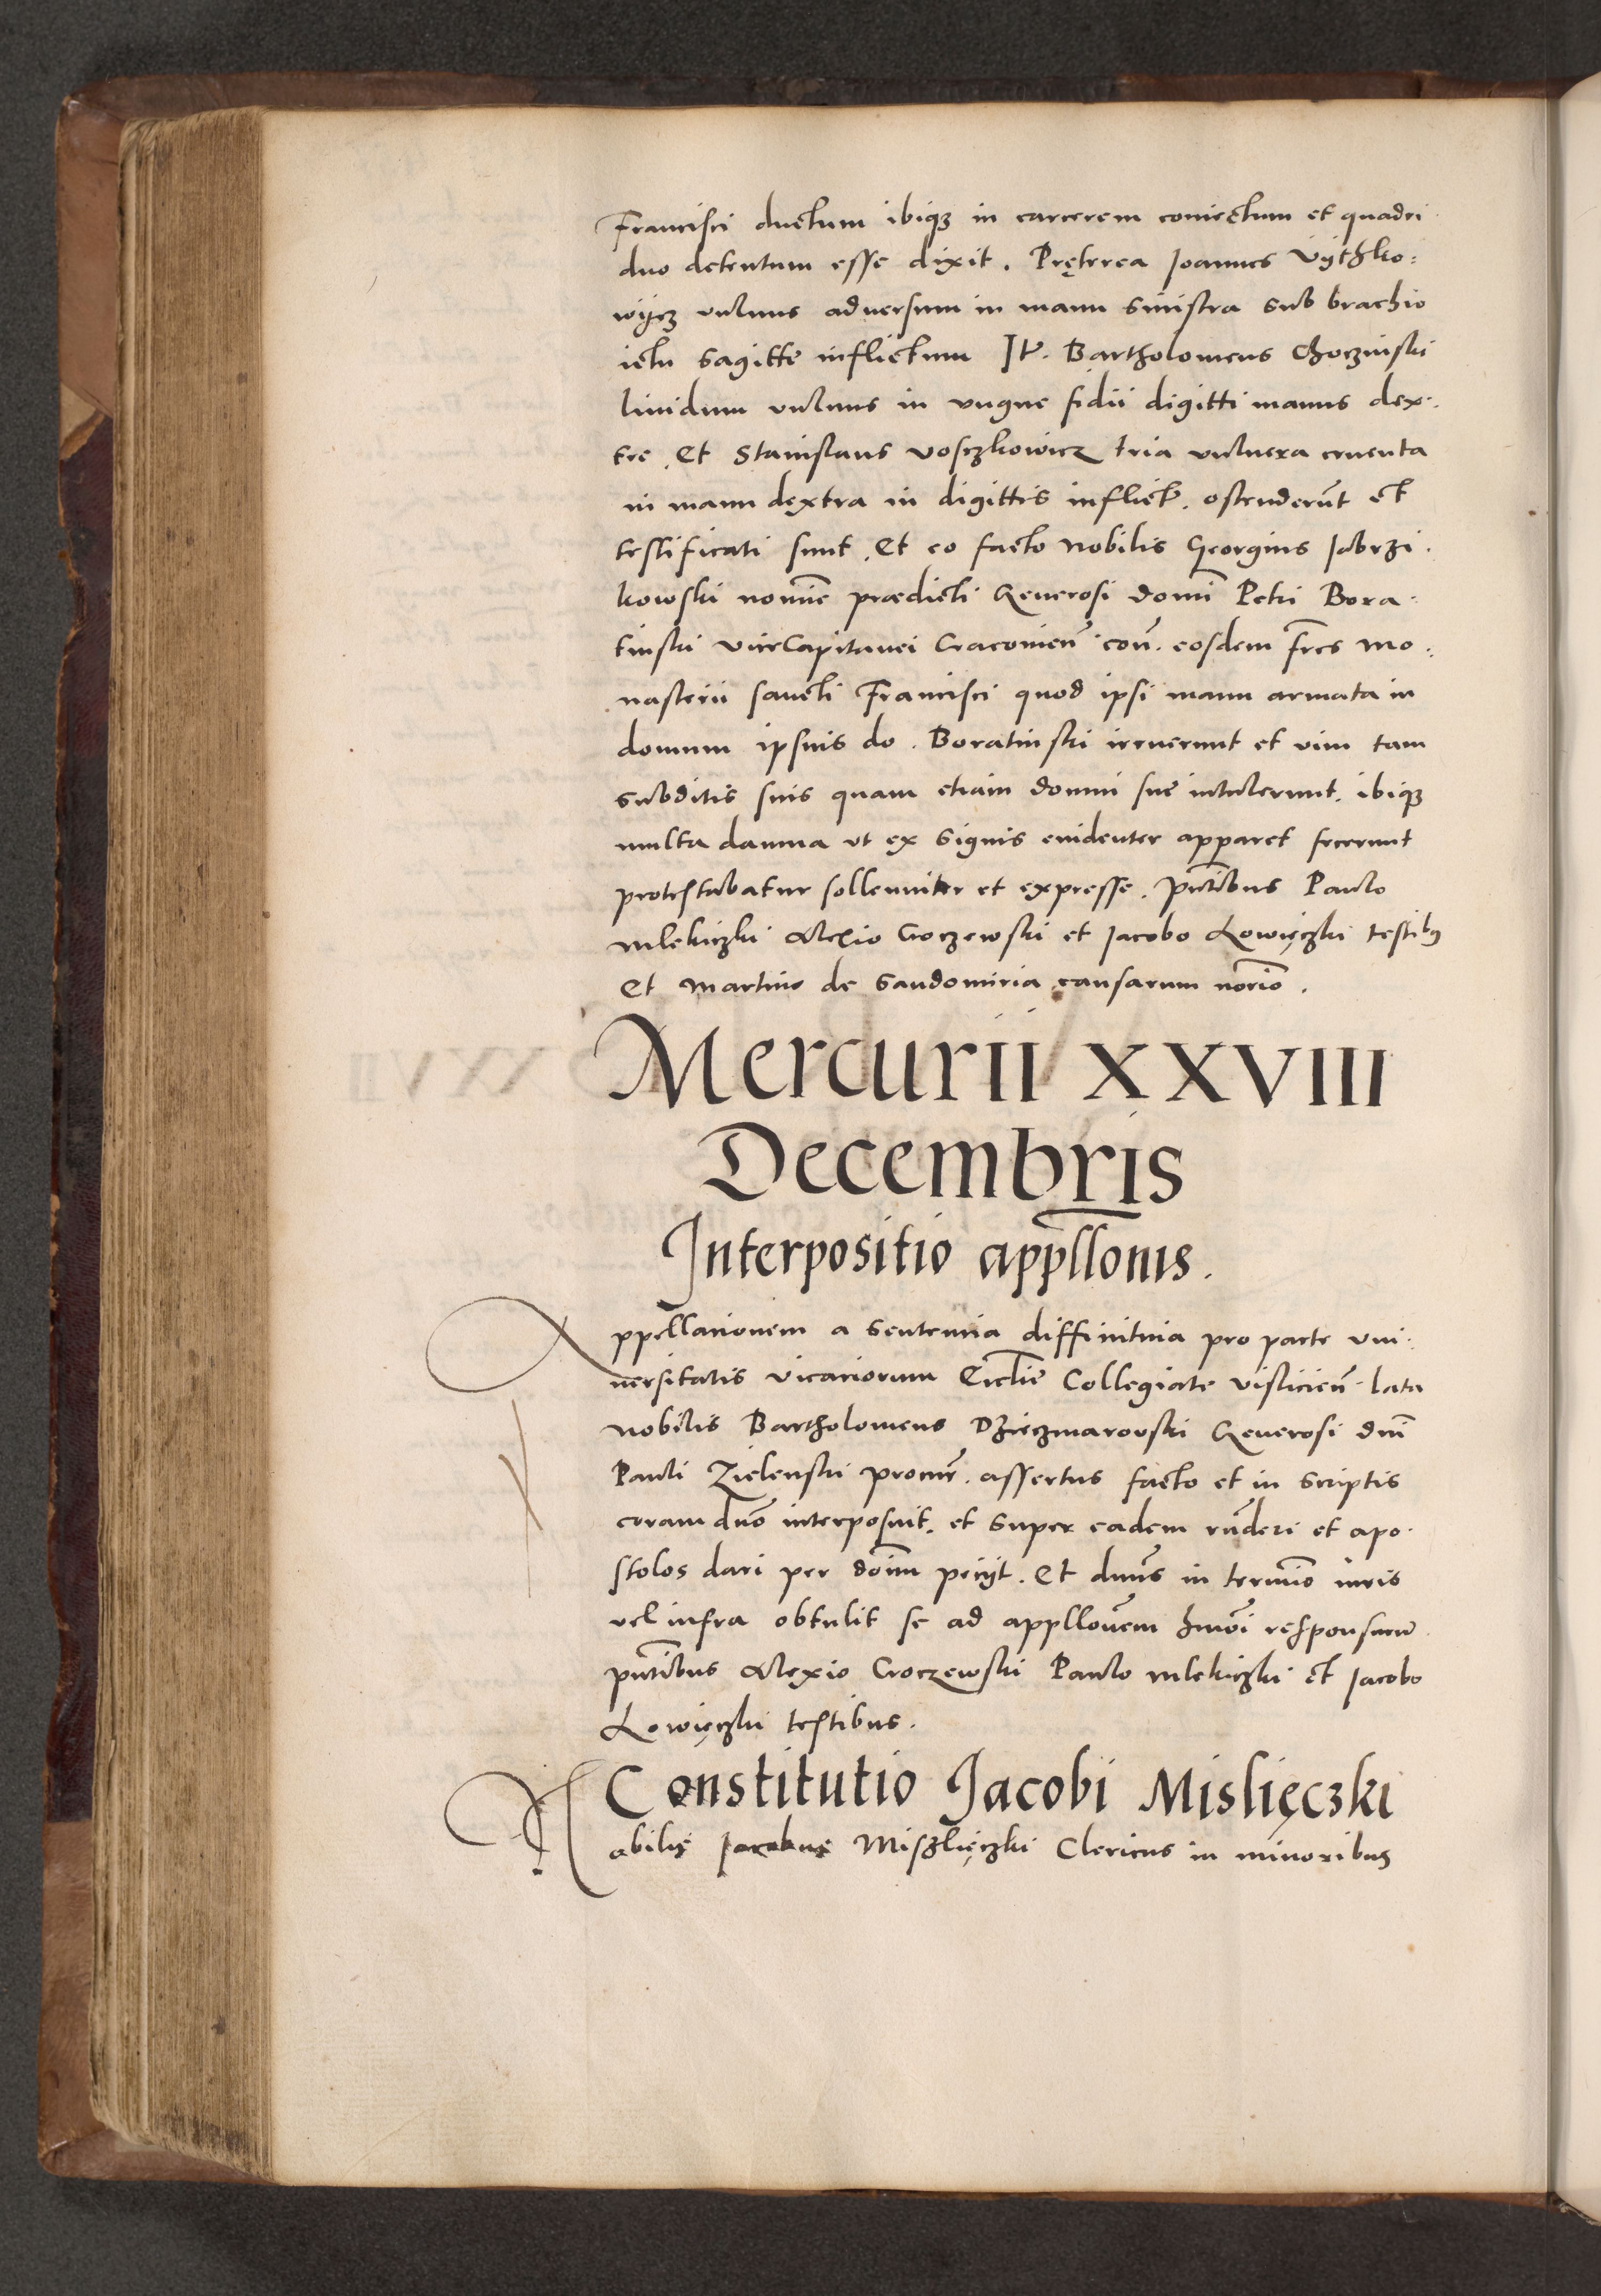 Francisci ductum ibiqȝ in carcerem coniectum et quadri
duo detentum esse dixit. Pręterea Joannes Vythko:
wycz vulnus adversum in manu sinistra sub brachio
ictu sagitte inflictum Jt̃. Bartholomeus Choczinski
lividum vulnus in ungue fidii digitti manus dex:
tre. Et Stanislaus Vosczkowicz tria vulnera cruenta
in manu dextra in digittis inflict̃. ostenderũt et
testificati sunt. Et eo facto Nobilis Georgius Jabrzi.
kowski nomĩe prædicti Generosi domĩ Petri Bora:
tinski ViceCapitanei Cracovieñ coñ. eosdem fr̃es mo:
nasterii sancti Francisci quod ipsi manu armata in
domum ipsius do. Boratinski irruerunt et vim tam
subditis suis quam etiam domui sue intulerunt. ibiqȝ
multa damna ut ex signis evidenter apparet fecerunt
protestabatur sollenniter et expresse. pñtibus Paulo
Mlekiczki Alexio Croczewski et Jacobo Lowięczki testibꝰ
Et Martino de Sandomiria causarum norĩo.
Mercurii XXVIII
Decembris
Interpositio app̃llonis.
Appellacionem a sentencia diffinitiva pro parte uni:
versitatis vicariorum Ecclĩe Collegiate Visliciеñ lata
Nobilis Bartholomeus Dzieczmarovski Generosi dñi
Pauli Zielenski procur̃. assertus facto et in scriptis
coram dño interposuit. et super eadem rñderi et apo:
stolos dari per doĩm peciit. Et dnũs in termĩo iuris
vel infra obtulit se ad appllonẽm hmõi responsurũ.
pñtibus Alexio Croczewski Paulo Mlekiczki et Jacobo
Lowięczki testibus.
Constitutio Jacobi Mislięczki
Nobilis Jacobus Miszlięczki Clericus in minoribus